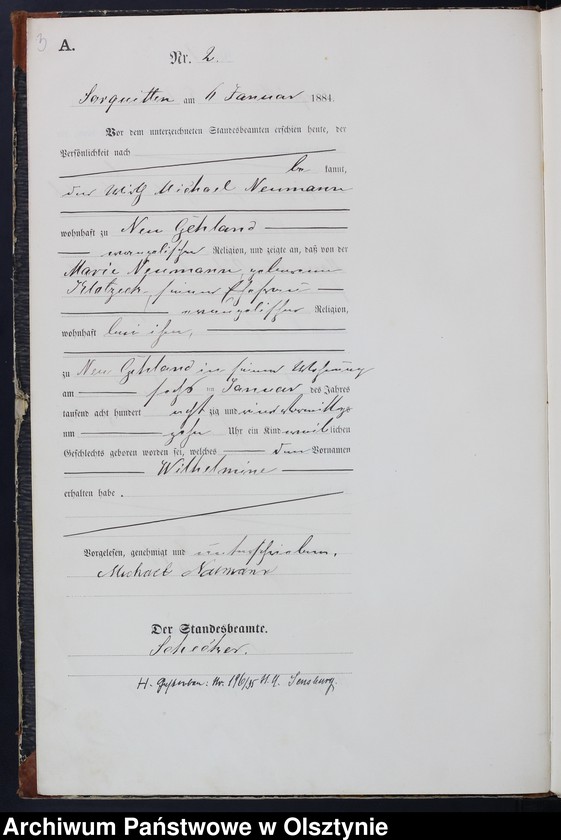 3
A.
Nr. 2.
Sorquitten am 6 Januar 1884.
Vor dem unterzeichneten Standesbeamten erschien heute, der
Persönlichkeit nach
be kannt,
der Wirth Michael Neumann
wohnhaft zu Neu Gehland
evangelischer Religion, und zeigte an, daß von der
Marie Neumann, geborenen
Klotzeck, seiner Ehefrau
evangelischer Religion,
wohnhaft bei ihm,
zu Neu Gehland in seiner Wohnung
am sechs ten Januar des Jahres
tausend acht hundert acht zig und vier Vormittags
um zehn Uhr ein Kind weiblichen
Geschlechts geboren worden sei, welches den Vornamen
Wilhelmine
erhalten habe.
Vorgelesen, genehmigt und unterschrieben.
Michael
Der Standesbeamte.
Gestorben: Nr. Sensburg.
Archiwum Państwowe w Olsztynie